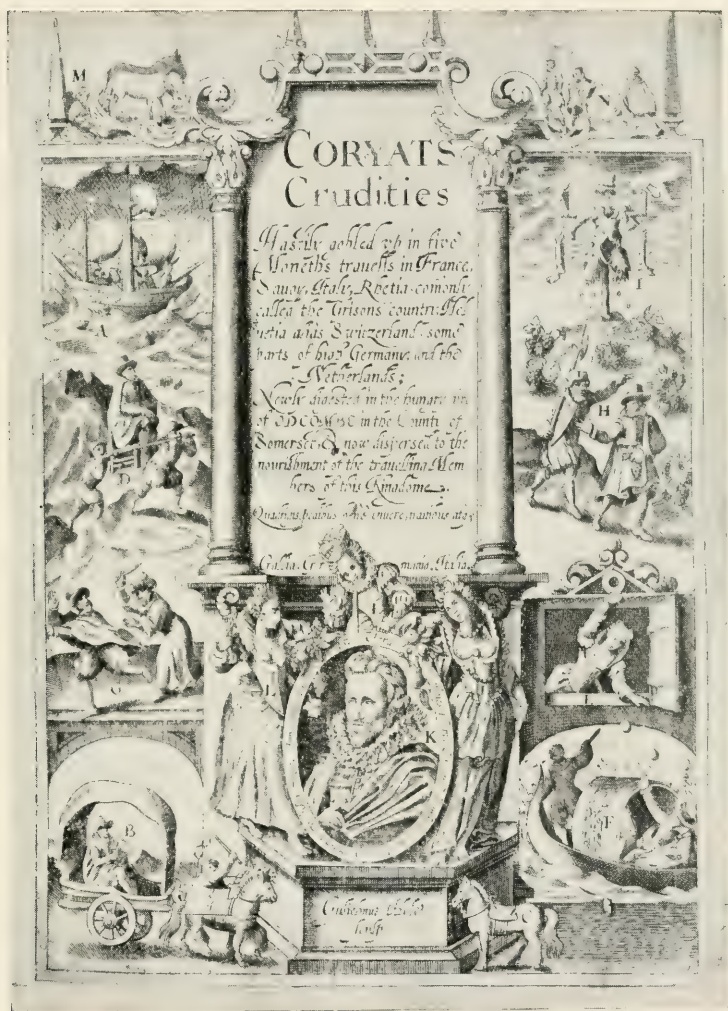 M
CORYATS
Crudities
Hastily gobled vp in five
Moneths travells in France,
Savoy, Italy, Rhetia comonly
called the Grisons country, Hel
vetia aliàs Switzerland, some
parts of high Germany, and the
Netherlands;
Newly digested in the hungry aire
of ODCOMBE in the County of
Somerset, & now dispersed to the
nourishment of the travelling Mem
bers of this Kingdome.
Gallia, Italia.
A
D
I
H
C
L
K
B
F
sculp